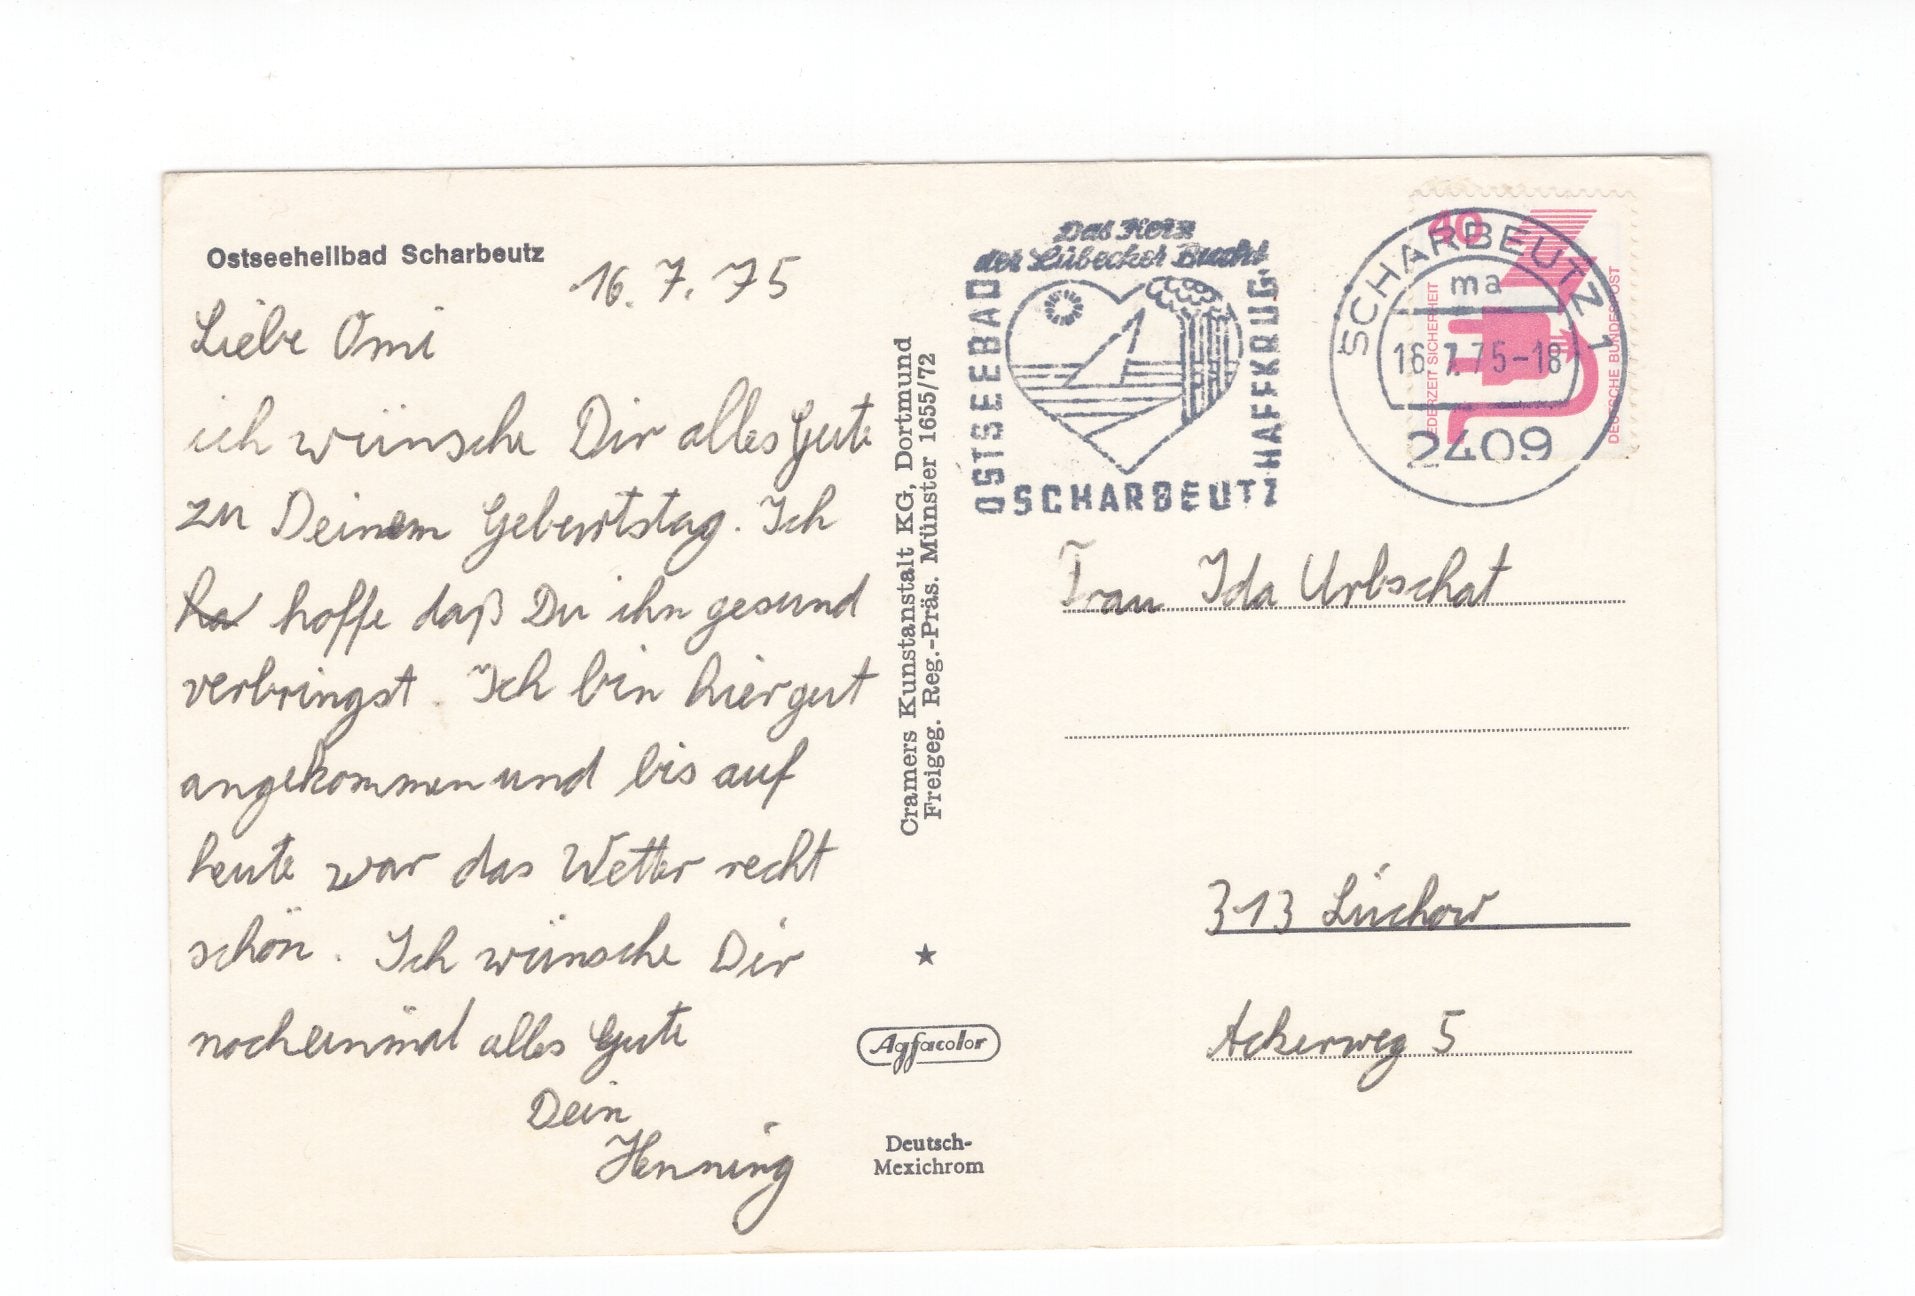 Ostseeheilbad Scharbeutz
16. 7. 75
Liebe Omi
ich wünsche Dir alles Gute
zu Deinem Geburtstag. Ich
ha hoffe daß Du ihn gesund
verbringst. Ich bin hier gut
angekommen und bis auf
heute war das Wetter recht
schön. Ich wünsche Dir
nocheinmal alles Gute
Dein
Henning
Cramers Kunstanstalt KG, Dortmund
Freigeg. Reg.-Präs. Münster 1655/72
★
Agfacolor
Deutsch-
Mexichrom
Das Herz
der Lübecker Bucht
OSTSEEBAD
SCHARBEUTZ
HAFFKRUG
SCHARBEUTZ 1
ma
16.7.75-18
2409
40
JEDERZEIT SICHERHEIT
DEUTSCHE BUNDESPOST
Frau Ida Urbschat
313 Lüchow
Ackerweg 5